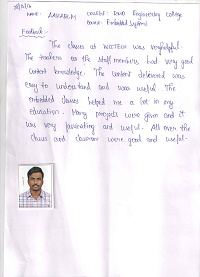 NAME: AAKASH.M
College: RMD Engineering College
Course: Embedded Systems
Feedback:-
The classes at WIZTECH was very helpful.
The teachers as the staff members had very good
content knowledge. The content delivered was
easy to understand and was useful. The
embedded classes helped me a lot in my
education. Many projects were given and it
was very fascinating and useful. All over the
class and classroom were good and useful.